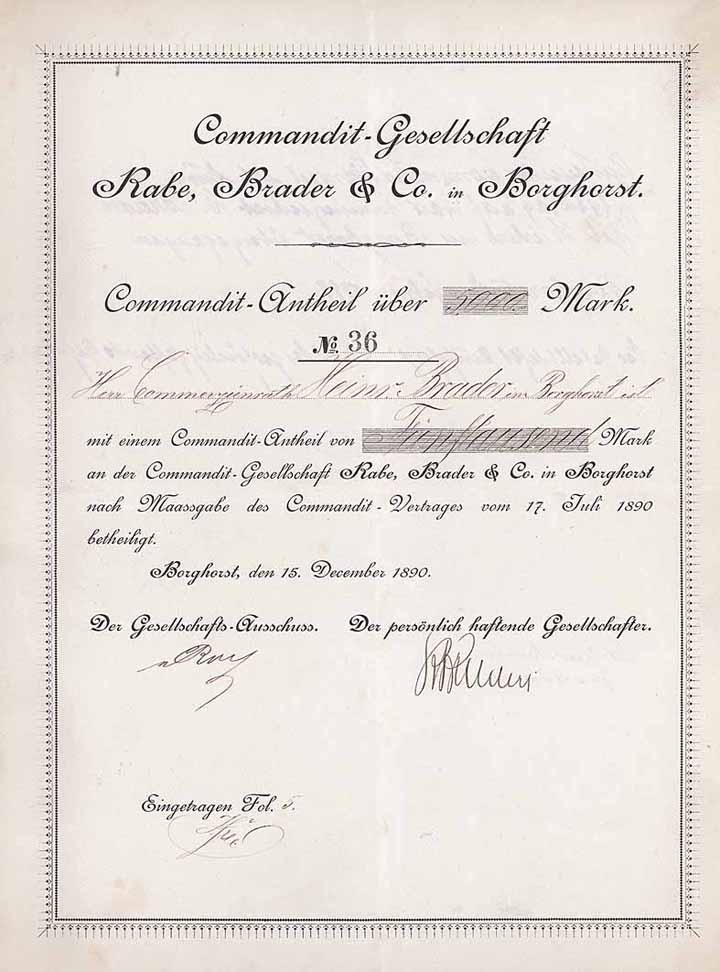 Commandit-Gesellschaft
Rabe, Brader & Co. in Borghorst.
Commandit-Antheil über 5000 Mark.
No. 36
Herr Commerzienrath Heinr. Brader in Borghorst ist
mit einem Commandit-Antheil von Fünftausend Mark
an der Commandit-Gesellschaft Rabe, Brader & Co. in Borghorst
nach Maassgabe des Commandit-Vertrages vom 17. Juli 1890
betheiligt.
Borghorst, den 15. December 1890.
Der Gesellschafts-Ausschuss. Der persönlich haftende Gesellschafter.
Eingetragen Fol. 5.